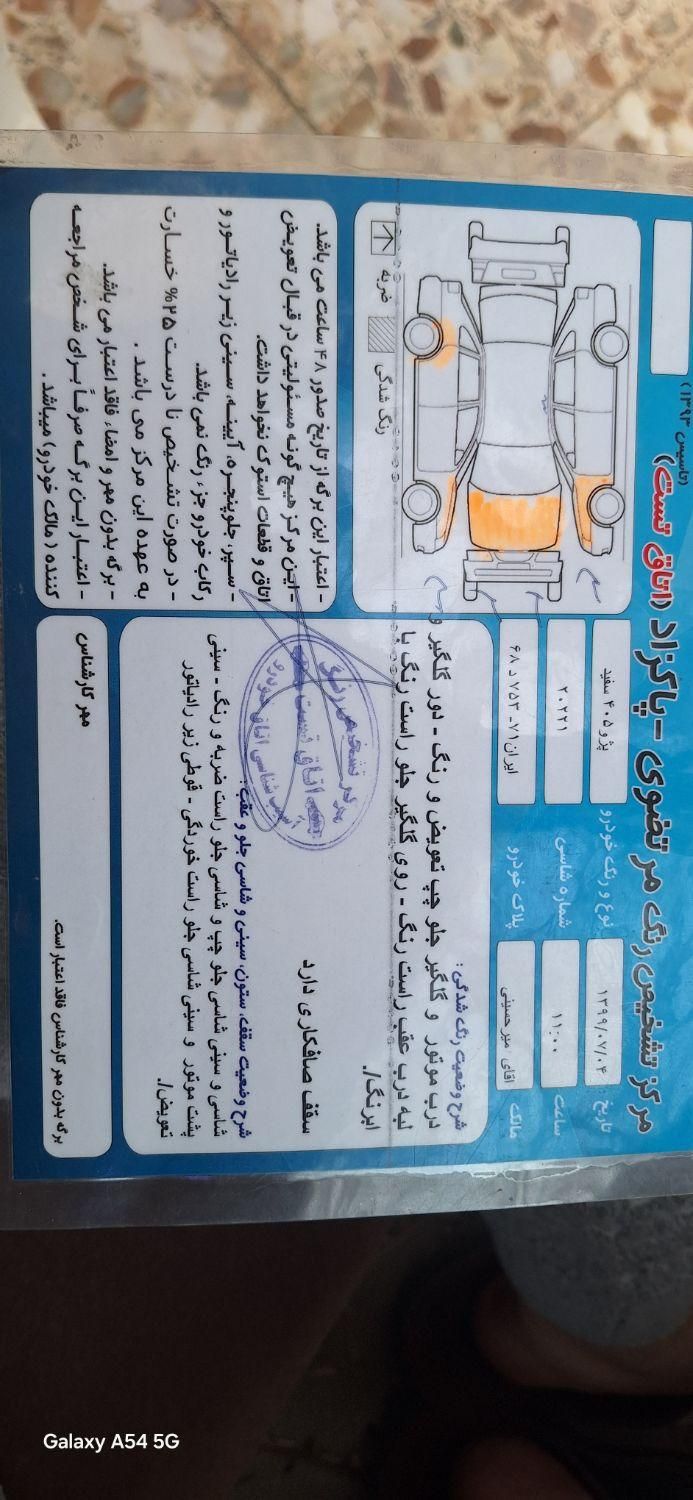 مرکز تشخیص رنگ مرتضوی - پاکزاد (اتاق تست)
(تاسیس ۱۳۹۳)
تاریخ ۱۳۹۹/۰۷/۰۴
نوع و رنگ خودرو پژو ۴۰۵ سفید
ساعت ۱۱:۰۰
شماره شاسی ۲۰۲۲۱
مالک اقای میرحسینی
پلاک خودرو ایران ۷۱- ۷۵۳ د ۶۸
شرح وضعیت رنگ شدگی:
درب موتور و گلگیر جلو چپ تعویض و رنگ - دور گلگیر و
لبه درب عقب راست رنگ - روی گلگیر جلو راست رنگ یا
ابرنگ/.
سقف صافکاری دارد
شرح وضعیت سقف، ستون، سینی و شاسی جلو و عقب:
شاسی و سینی شاسی جلو چپ و شاسی جلو راست ضربه و رنگ - سینی
پشت موتور و سینی شاسی جلو راست خوردگی - قوطی زیر رادیاتور
تعویض/.
ضربه
رنگ شدگی
- اعتبار این برگه از تاریخ صدور ۴۸ ساعت می باشد.
- این مرکز هیچ گونه مسئولیتی در قبال تعویض
اتاق و قطعات استوک نخواهد داشت.
- سپر، جلوپنجره، آیینه، سینی زیر رادیاتور و
رکاب خودرو جزء رنگ نمی باشد.
- در صورت تشخیص نا درست ۲۵% خسارت
به عهده این مرکز می باشد.
- برگه بدون مهر و امضاء فاقد اعتبار می باشد.
- اعتبار این برگه صرفاً برای شخص مراجعه
کننده (مالک خودرو) میباشد.
مهر کارشناس
برگه بدون مهر کارشناس فاقد اعتبار است.
مرکز تشخیص رنگ
اتاق تست
Galaxy A54 5G